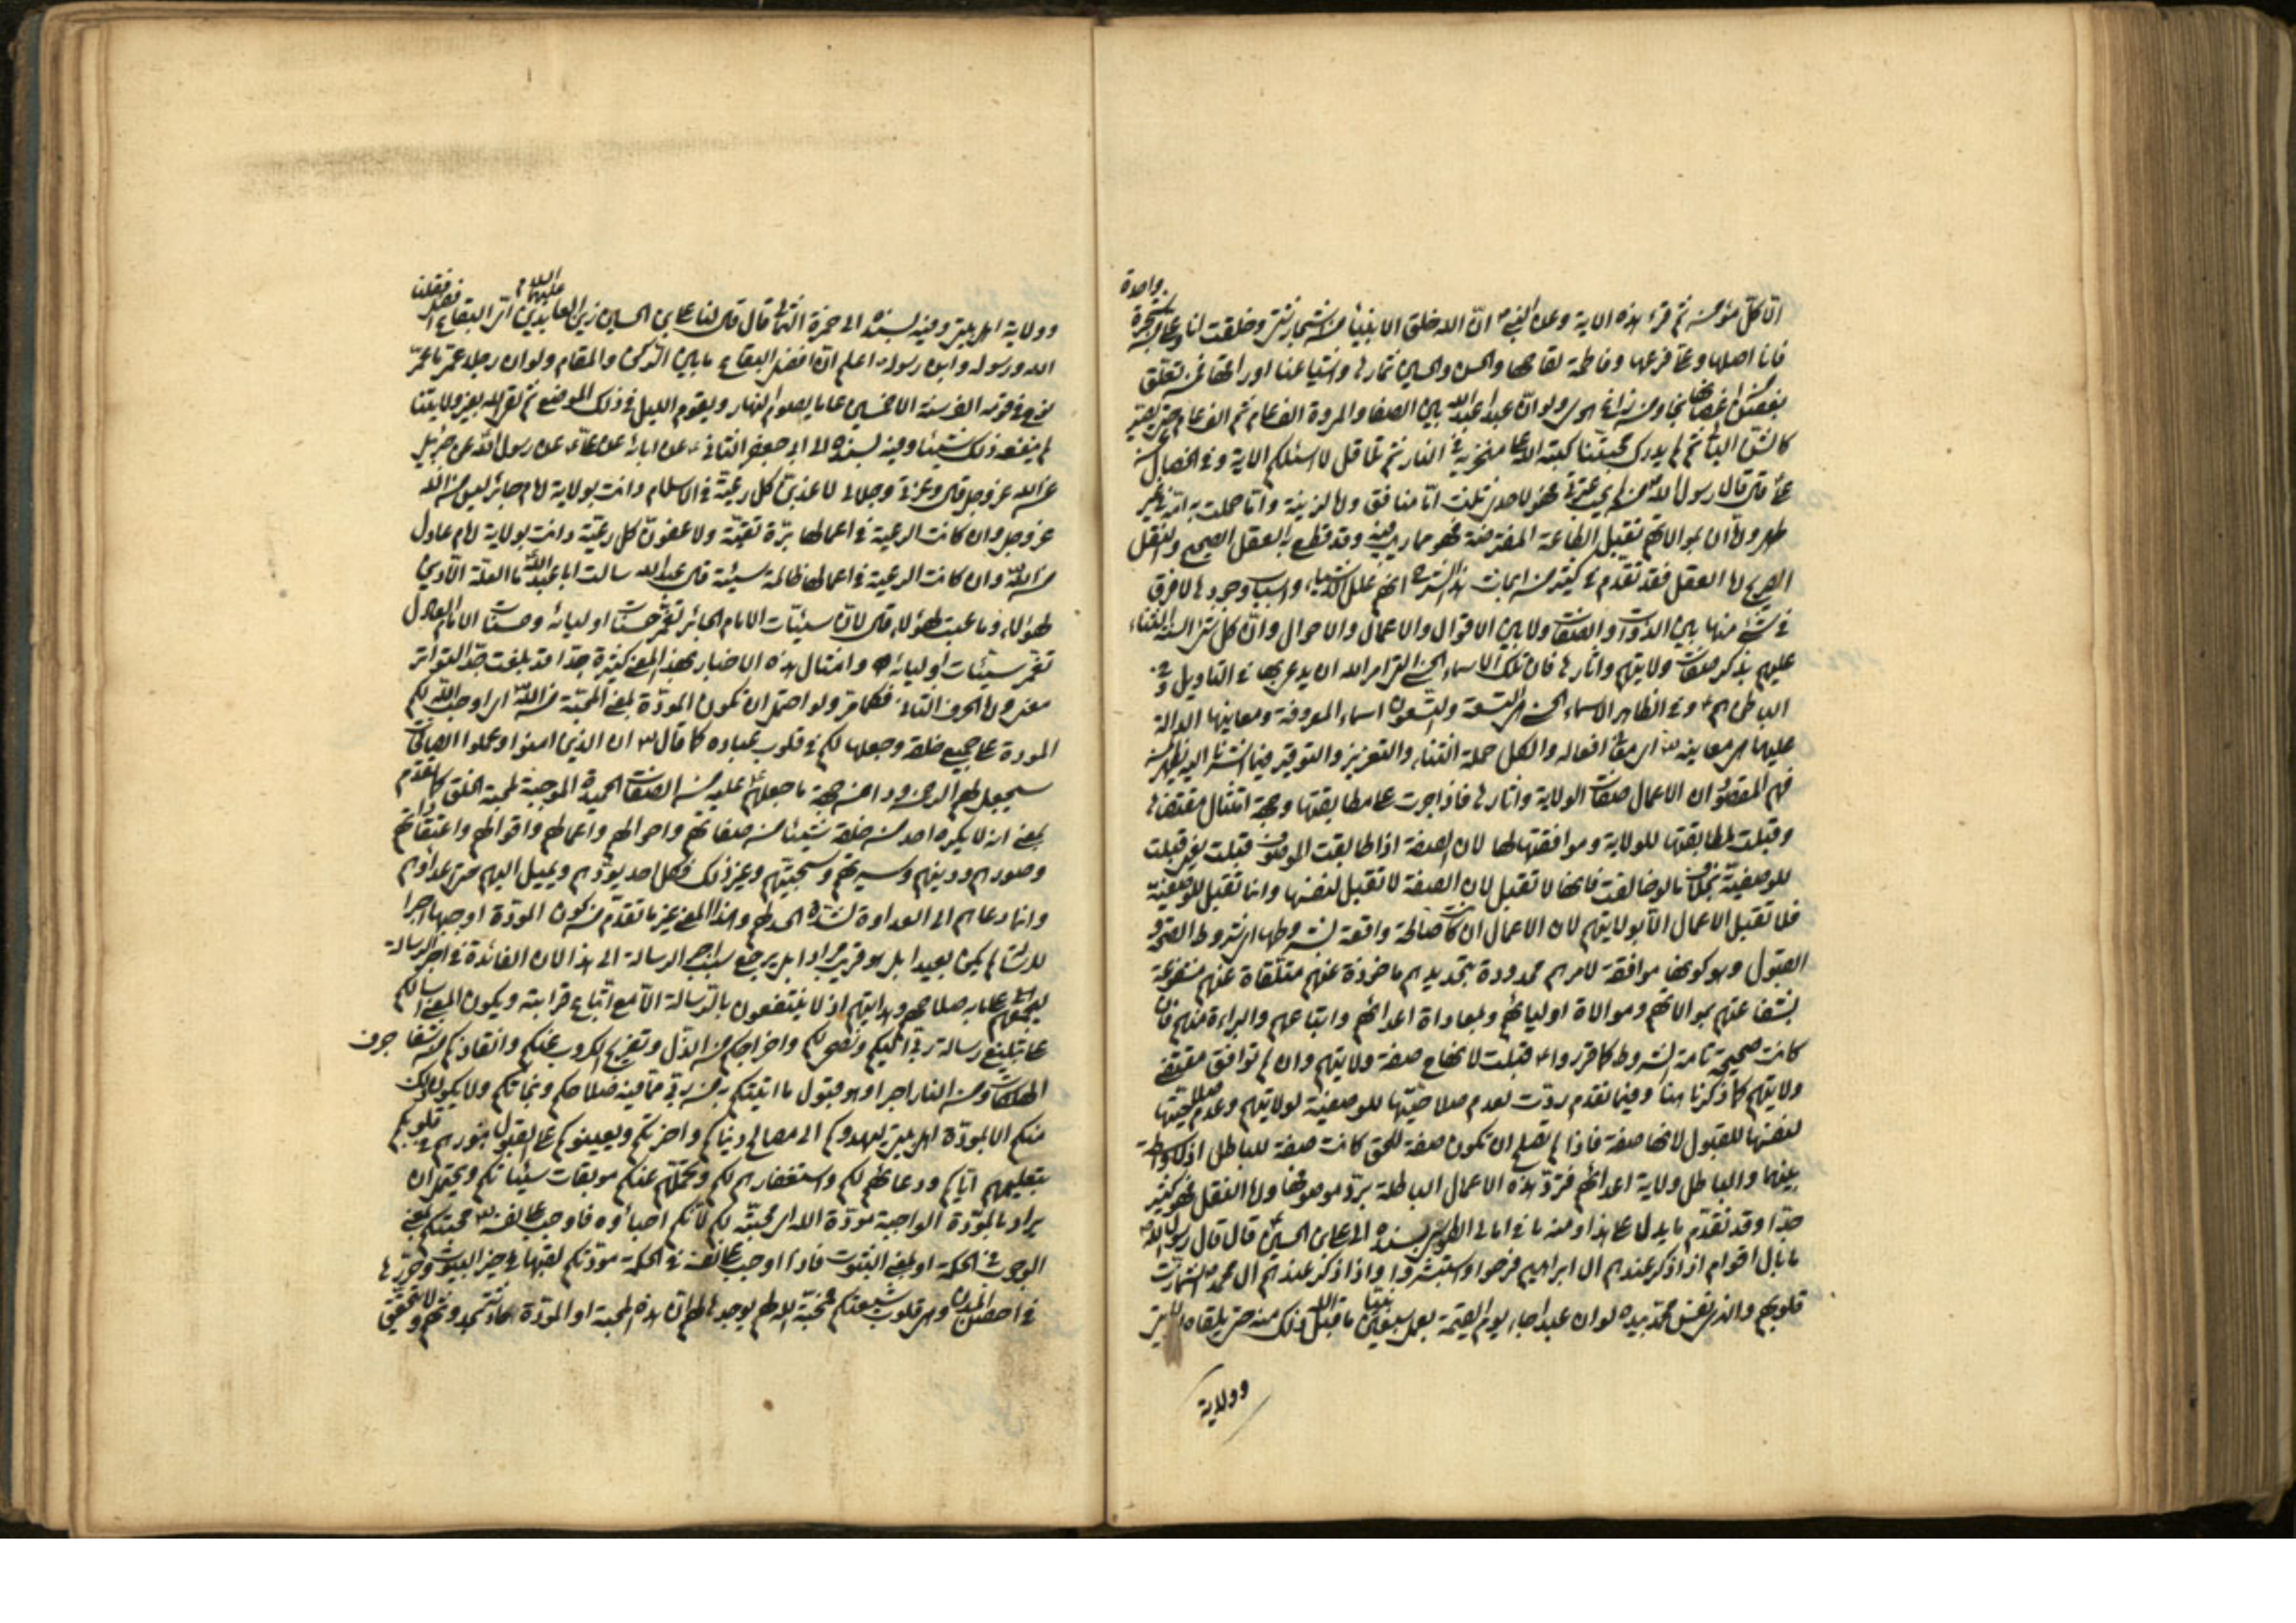 الا كل مؤمن ثم قرء هذه الاية وعن النبي ص ان الله خلق الانبياء من اشجار شتى وخلقت انا وعلي من شجرة واحدة
فانا اصلها وعلي فرعها وفاطمة لقاحها والحسن والحسين ثمارها واشياعنا اوراقها فمن تعلق
بغصن من اغصانها نجا ومن زاغ هوى ولو ان عبدا عبد الله بين الصفا والمروة الف عام ثم الف عام حتى يصير
كالشن البالي ثم لم يدرك محبتنا كبه الله على منخريه في النار ثم تلا قل لا اسئلكم الاية وفي الخصال عن
علي ع قال قال رسول الله ص من لم يحب عترتي فهو لاحدى ثلث اما منافق واما لزنية واما حملت به امه في غير
طهر واما ان بموالاتهم تقبل الطاعة المفترضة فهو مما لا ريب فيه وقد قطع به العقل الصحيح والنقل
الصريح اما العقل فقد تقدم في كثير من ابحاث هذا الشرح انهم علل الاشياء واسباب وجودها لا فرق
في شيء منها بين الذوات والصفات ولا بين الاقوال والاعمال والاحوال وان كل
عليهم بذكر صفات ولايتهم واثارها فان تلك الاسماء الحسنى التي امر الله ان يدعى بها في التاويل وفي
الباطن هم ع وفي الظاهر الاسماء الحسنى التسعة والتسعون اسماء المعروفة ومعانيها الدالة
عليها هي معانيه اي معاني افعاله والكل حملة الثناء والتعزيز والتوقير فيما اشرنا اليه يظهر لمن
فهم المقصود ان الاعمال صفات الولاية واثارها فاذا جرت على مطابقتها وجهة امتثال مقتضاها
وقبلت لمطابقتها للولاية وموافقتها لها لان الصفة اذا طابقت الموصوف قبلت يعني قبلت
للوصفية بخلاف ما لو خالفت فانها لا تقبل لان الصفة لا تقبل لنفسها وانما تقبل للوصفية
فلا تقبل الاعمال الا بولايتهم لان الاعمال ان كانت صالحة واقعة بشروطها اي شروط الصحة و
القبول وهو كونها موافقة لامرهم محدودة بتحديدهم ماخوذة عنهم متلقاة عنهم متفرعة
عنهم بموالاتهم وموالاة اوليائهم وبمعاداة اعدائهم واتباعهم والبراءة منهم فان
كانت صحيحة تامة الشروط كما قرروا ع قبلت لانها ح صفة ولايتهم وان لم توافق مقتضى
ولايتهم كما ذكرنا هنا وفيما تقدم ردت لعدم صلاحيتها للوصفية لولايتهم وعدم صلاحيتها
لنفسها للقبول لانها صفة فاذا لم تصلح ان تكون صفة للحق كانت صفة للباطل اذ لا واسطة
بينهما والباطل ولاية اعدائهم فترد هذه الاعمال الباطلة برد موصوفها واما النقل فهو كثير
جدا وقد تقدم ما يدل على هذا ومنه ما في امالي الطوسي بسنده الى علي بن الحسين ع قال قال رسول الله ص
ما بال اقوام اذا ذكر عندهم ال ابراهيم فرحوا واستبشروا واذا ذكر عندهم ال محمد ص اشمازت
قلوبهم والذي نفس محمد بيده لو ان عبدا جاء يوم القيمة بعمل سبعين نبيا ما قبل الله ذلك منه حتى يلقاه بولايتي
وولاية
وولاية اهل بيتي وفيه بسنده الى حمزة الثمالي قال قال لنا علي بن الحسين زين العابدين عليهما السلام اي البقاع افضل فقلنا
الله ورسوله وابن رسوله اعلم ان افضل البقاع ما بين الركن والمقام ولو ان رجلا عمر ما عمر
نوح في قومه الف سنة الا خمسين عاما يصوم النهار ويقوم الليل في ذلك الموضع ثم لقي الله بغير ولايتنا
لم ينفعه ذلك شيئا وفيه بسنده الى ابي جعفر الثاني ع عن ابائه عن علي ع عن رسول الله عن جبرئيل
عن الله عز وجل قال وعزتي وجلالي لاعذبن كل رعية في الاسلام دانت بولاية امام جائر ليس من الله
عز وجل وان كانت الرعية في اعمالها برة تقية ولاعفون كل رعية دانت بولاية امام عادل
من الله وان كانت الرعية في اعمالها ظالمة سيئة قال عبد الله سالت ابا عبد الله ما العلة الا دين
لهؤلاء وما عتب لهؤلاء قال لان سيئات الامام الجائر تغمر حسنات اوليائه وحسنات الامام العادل
تغمر سيئات اوليائه وامثال هذه الاخبار بهذا المعنى كثيرة جدا قد بلغت حد التواتر
معنى واما الحرف الثاني فكما مر ولو احتمل ان تكون المودة بمعنى المحبة من الله اي اوجب الله لكم
المودة على جميع خلقه وجعلها لكم في قلوب عباده كما قال ان الذين امنوا وعملوا الصالحات
سيجعل لهم الرحمن ودا من جهة ما جعلهم ع عليه من الصفات الحميدة الموجبة لمحبة الخلق كما تقدم
بمعنى انه لا يكره احد من خلقه شيئا من صفاتهم واحوالهم واعمالهم واقوالهم واعتقاداتهم
وصورهم ودينهم وسيرتهم وسجيتهم وغير ذلك فكل احد يودهم ويميل اليهم حتى اعداؤهم
وانما دعاهم الى العداوة لشدة الحسد لهم وهذا المعنى غير ما تقدم من كون المودة اوجبها اجرا
للرسالة لم يكن بعيدا بل هو قريب مراد بل يرجع سبب اجر الرسالة الى هذا لان الفائدة في اجر الرسالة
ليجمعهم على ما به صلاحهم وهدايتهم اذ لا ينتفعون بالرسالة الا مع اتباع قرابته ويكون المعنى اسالكم
على تبليغ رسالة ربي اليكم ونصحي لكم واخراجكم من الذل وتفريج الكروب عنكم وانقاذكم من شفا جرف
الهلكات ومن النار اجرا وهو قبول ما اتيتكم به من ربي مما فيه صلاحكم ونجاتكم ولا يكون ذلك
منكم الا بمودة اهل بيتي ليهدوكم الى مصالح دنياكم واخرتكم ويعينوكم على القبول بنورهم في قلوبكم
بتعليمهم اياكم ودعائهم لكم واستغفارهم لكم وتحملهم عنكم موبقات سيئاتكم ويحتمل ان
يراد بالمودة الواجبة مودة الله اي محبته لكم لانكم احباؤه فاوجب على نفسه محبتكم بمعنى
الوجوب في الحكمة او بمعنى الثبوت فاذا اوجب على نفسه في الحكمة مودتكم اثبتها في خير البيوت وحرزها
في احصن المدن وهي قلوب شيعتكم فمحبة الله لهم يوجد لهم ان هذه المحبة او المودة